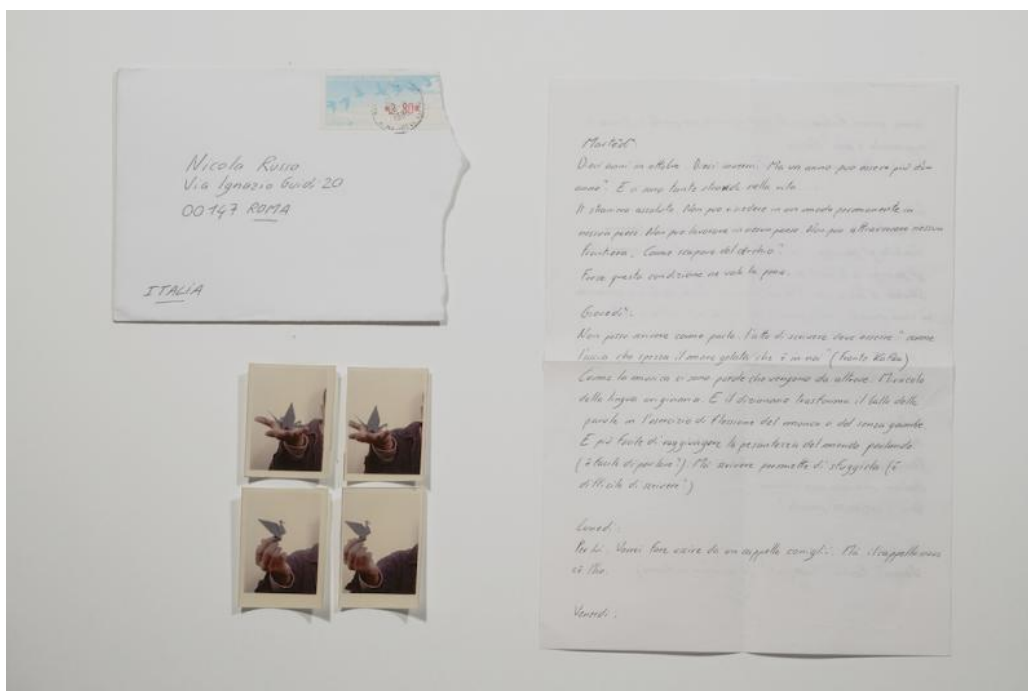 Nicola Russo
Via Ignazio Guidi 20
00147 ROMA
ITALIA
Martedì
Dieci anni in ottobre. Dieci inverni. Ma un anno può essere più d'un
anno". E ci sono tante nella vita.
Non può risiedere in un modo permanente in
nessun paese. Non può lavorare in nessun paese. Non può attraversare nessuna
frontiera. Come
Forse questa condizione ne vale la pena.
Giovedì:
Non posso scrivere come parlo. di scrivere deve essere "come
l'ascia che spezza il mare gelato che è in noi" (Franz Kafka)
Come la musica ci sono parole che vengono da altrove. Miracolo
della lingua originaria. E il dizionario trasforma il ballo delle
parole in l'esercizio di flessione del monco o del senza gambe.
E più facile di raggiungere la pesantezza del mondo parlando.
(è facile di parlare!) Ma scrivere permette di sfuggirla (è
difficile di scrivere")
Lunedì:
Per Lei. Vorrei fare uscire da un cappello conigli. Ma il cappello
Venerdì: